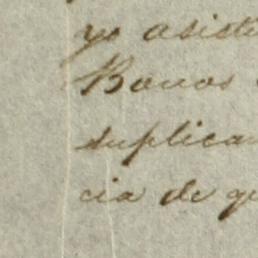 yo asisti
Bouos
suplica
cia de q